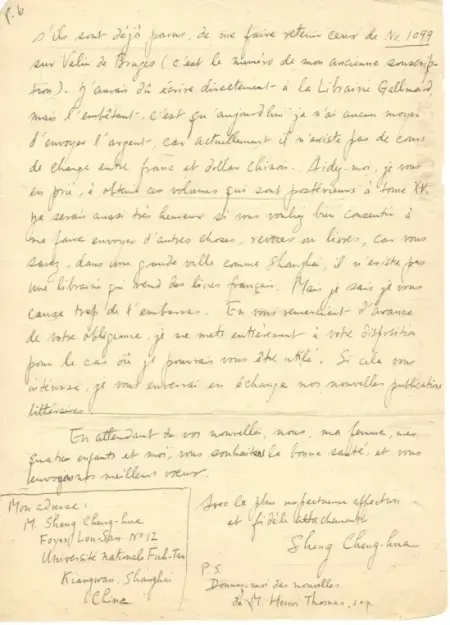 p. 6
s'ils sont déjà parus, de me faire retenir ceux de No. 1099
sur Vélin de Bruges (c'est le numéro de mon ancienne souscrip-
tion). J'aurais dû écrire directement à la Librairie Gallimard,
mais l'embêtant, c'est qu'aujourd'hui je n'ai aucun moyen
d'envoyer l'argent, car actuellement il n'existe pas de cours
de change entre franc et dollar chinois. Aidez-moi, je vous
en prie, à obtenir ces volumes qui sont postérieurs à tome XV.
Je serais aussi très heureux si vous vouliez bien consentir à
me faire envoyer d'autres choses, revues ou livres, car vous
savez, dans une grande ville comme Shanghai, il n'existe pas
une librairie qui vend des livres français. Mais je sais je vous
cause trop de l'embarras. En vous remerciant d'avance
de votre obligeance, je me mets entièrement à votre disposition
pour le cas où je pourrais vous être utile. Si cela vous
intéresse, je vous enverrai en échange nos nouvelles publications
littéraires.
En attendant de vos nouvelles, nous, ma femme, mes
quatre enfants et moi, vous souhaitons la bonne santé, et vous
envoyons nos meilleurs vœux.
Avec la plus respectueuse affection
et fidèle attachement
Sheng Cheng-hua
Mon adresse:
M. Sheng Cheng-hua
Foyer Lou-San No 12
Université nationale Fuh-Tan
Kiangwan, Shanghai
Chine
P.S.
Donnez-moi des nouvelles
de M. Henri Thomas, s.v.p.